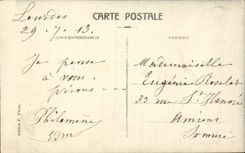 CARTE POSTALE
CORRESPONDANCE
ADRESSE
Lourdes
29-7-13.
Je pense
à vous
prions
Philomène
Mademoiselle
Eugénie
33 rue St Honoré
Amiens
Somme